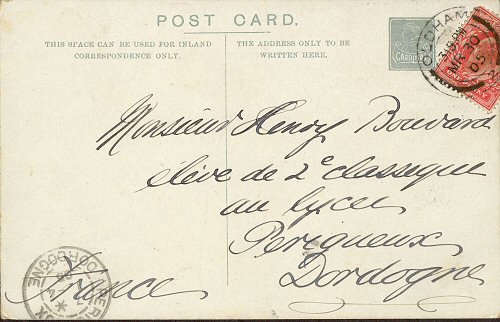 POST CARD.
THIS SPACE CAN BE USED FOR INLAND
CORRESPONDENCE ONLY.
THE ADDRESS ONLY TO BE
WRITTEN HERE.
OLDHAM
MR 30
05
Monsieur Henry Bouvard
élève de 2e classique
au lycée
Périgueux
Dordogne
France
DORDOGNE